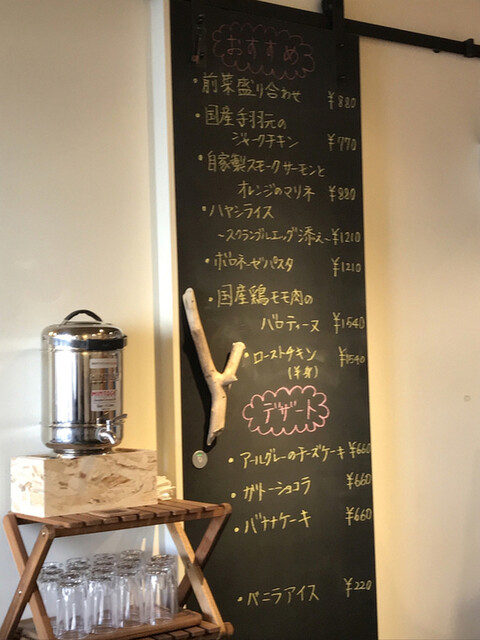 おすすめ
・前菜盛り合わせ ¥880
・国産手羽元の
ジャークチキン ¥770
・自家製スモークサーモンと
オレンジのマリネ ¥880
・ハヤシライス
～スクランブルエッグ添え～ ¥1210
・ボロネーゼパスタ ¥1210
・国産鶏モモ肉の
バロティーヌ ¥1540
・ローストチキン ¥1540
(半身)
デザート
・アールグレーのチーズケーキ ¥660
・ガトーショコラ ¥660
・バナナケーキ ¥660
・バニラアイス ¥220